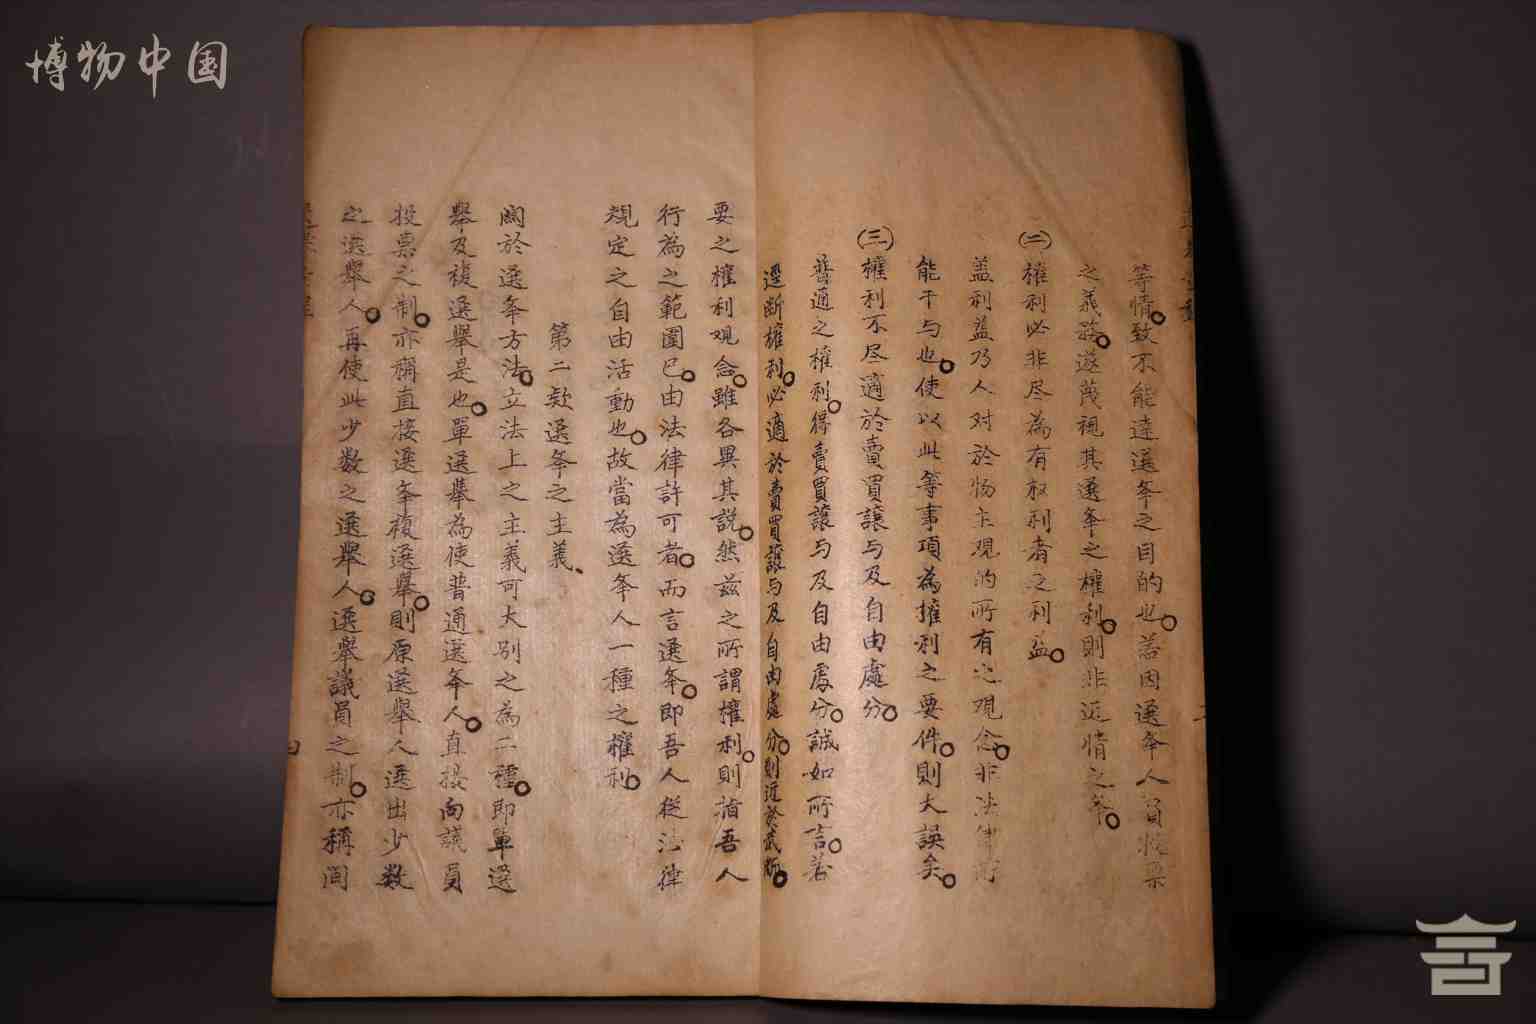 博物中国
等情致不能達選举之目的也若因選举人負投票
之義務遂蔑視其選举之權利則非近情之举
(二)權利必非尽為有权利者之利益
盖利益乃人对於物主观的所有之观念非法律所
能干与也使以此等事項為權利之要件則大誤矣
(三)權利不尽適於賣買讓与及自由處分
普通之權利得賣買讓与及自由處分誠如所言若
遥断權利必適於賣買讓与及自由處分則近於武断
要之權利观念雖各異其説然兹之所謂權利則指吾人
行為之範圍已由法律許可者而言選举即吾人從法律
規定之自由活動也故當為選举人一種之權利
第二欵選举之主義
関於選举方法立法上之主義可大別之為二種即單選
舉及複選舉是也單選舉為使普通選举人直接向議員
投票之制亦稱直接選举複選舉則原選舉人選出少数
之選舉人再使此少数之選舉人選舉議員之制亦稱间
四